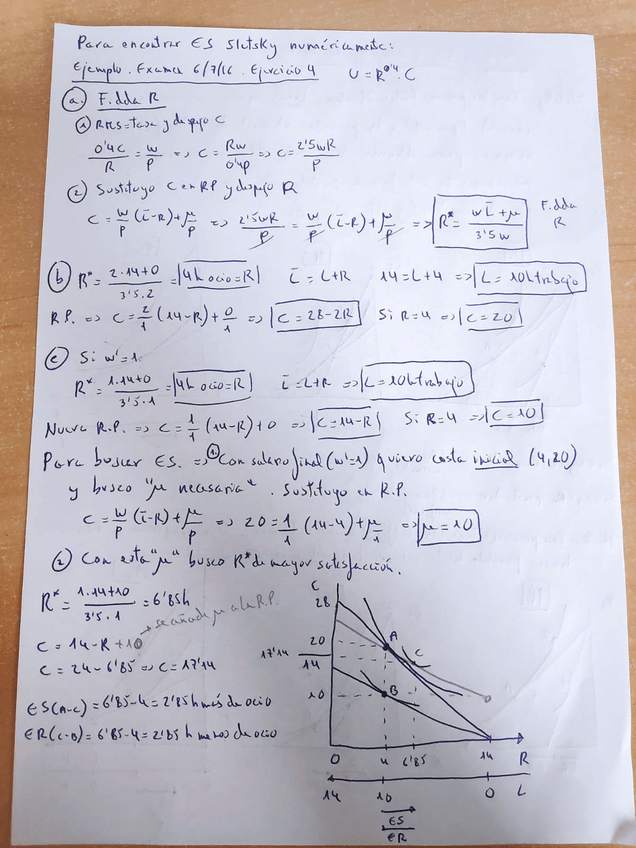 Para encontrar ES Slutsky numéricamente:
Ejemplo. Examen 6/7/16. Ejercicio 4   U = R^0'4 · C
a) F. dda R
① RMS = tasa y despejo C
0'4C/R = w/P => C = Rw/0'4P => C = 2'5wR/P
② Sustituyo C en RP y despejo R
C = w/P (L̄-R) + μ/P => 2'5wR/P = w/P (L̄-R) + μ/P => R* = (wL̄ + μ)/3'5w   F. dda R
b) R* = (2·14+0)/(3'5·2) = 4h ocio = R   L̄ = L+R   14 = L+4 => L = 10h trabajo
R.P. => C = 2/1 (14-R) + 0/1 => C = 28-2R   Si R=4 => C = 20
c) Si w' = 1
R* = (1·14+0)/(3'5·1) = 4h ocio = R   L̄ = L+R => L = 10h trabajo
Nueva R.P. => C = 1/1 (14-R) + 0 => C = 14-R   Si R=4 => C = 10
Para buscar ES. => ① Con salario final (w'=1) quiero cesta inicial (4,20)
y busco "μ necesaria". Sustituyo en R.P.
C = w/P (L̄-R) + μ/P => 20 = 1/1 (14-4) + μ/1 => μ = 10
② Con esta "μ" busco R* de mayor satisfacción.
R* = (1·14+10)/(3'5·1) = 6'85h
C = 14-R+10 → se añade μ a la R.P.
C = 24-6'85 => C = 17'14
ES(A-C) = 6'85-4 = 2'85 h más de ocio
ER(C-B) = 6'85-4 = 2'85 h menos de ocio
C
28
20
17'14
14
10
A
C
B
0 4 6'85 14 R
14 10 0 L
ES
ER